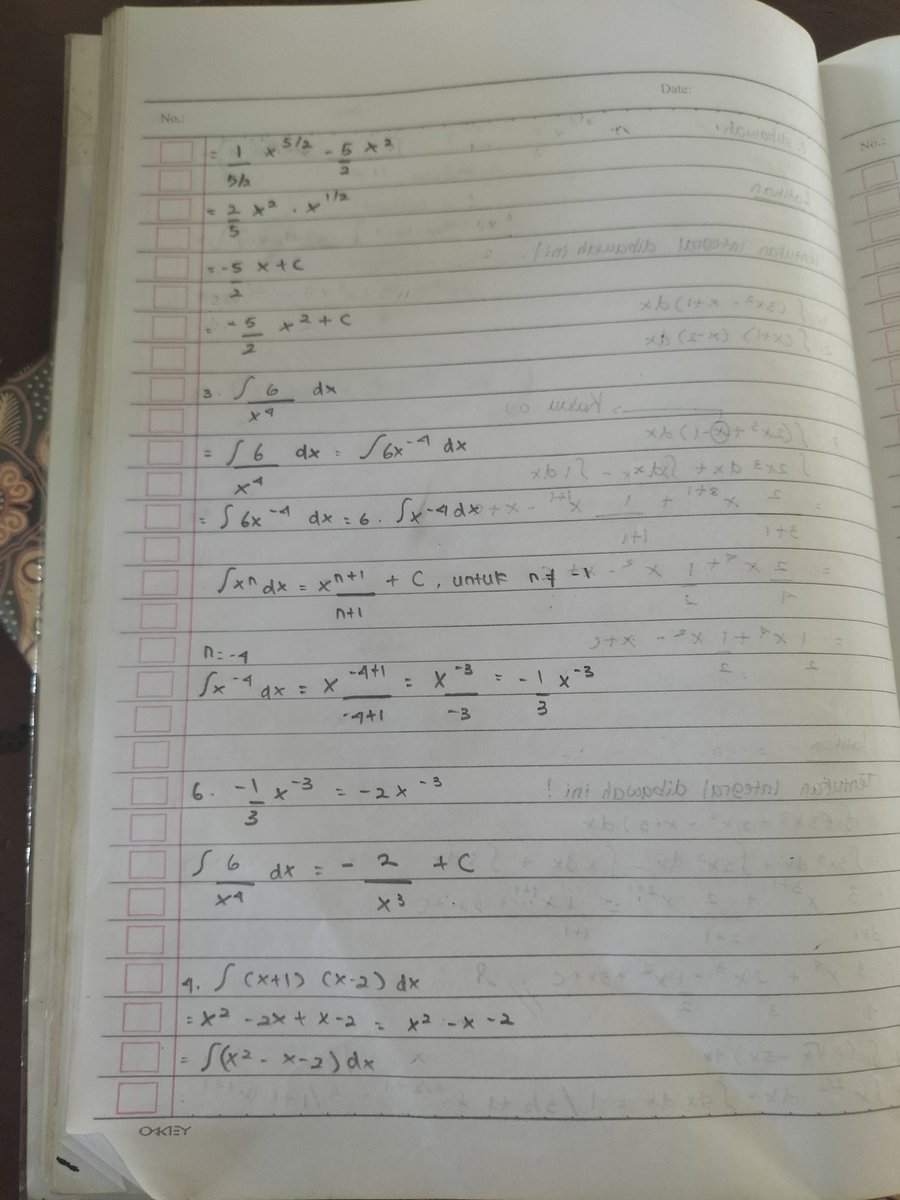 Date:
No.:
No.:
= 1/(5/2) x^5/2 - 5/2 x^2
= 2/5 x^2 . x^1/2
= -5/2 x + C
= - 5/2 x^2 + C
3. ∫ 6/x^4 dx
= ∫ 6/x^4 dx = ∫6x^-4 dx
= ∫ 6x^-4 dx = 6 . ∫x^-4 dx
∫x^n dx = x^n+1/n+1 + C, untuk n ≠ -1
n = -4
∫x^-4 dx = x^-4+1/-4+1 = x^-3/-3 = - 1/3 x^-3
6. -1/3 x^-3 = -2x^-3
∫ 6/x^4 dx = - 2/x^3 + C
4. ∫ (x+1) (x-2) dx
= x^2 - 2x + x - 2 = x^2 - x - 2
= ∫(x^2 - x - 2) dx
OAKLEY